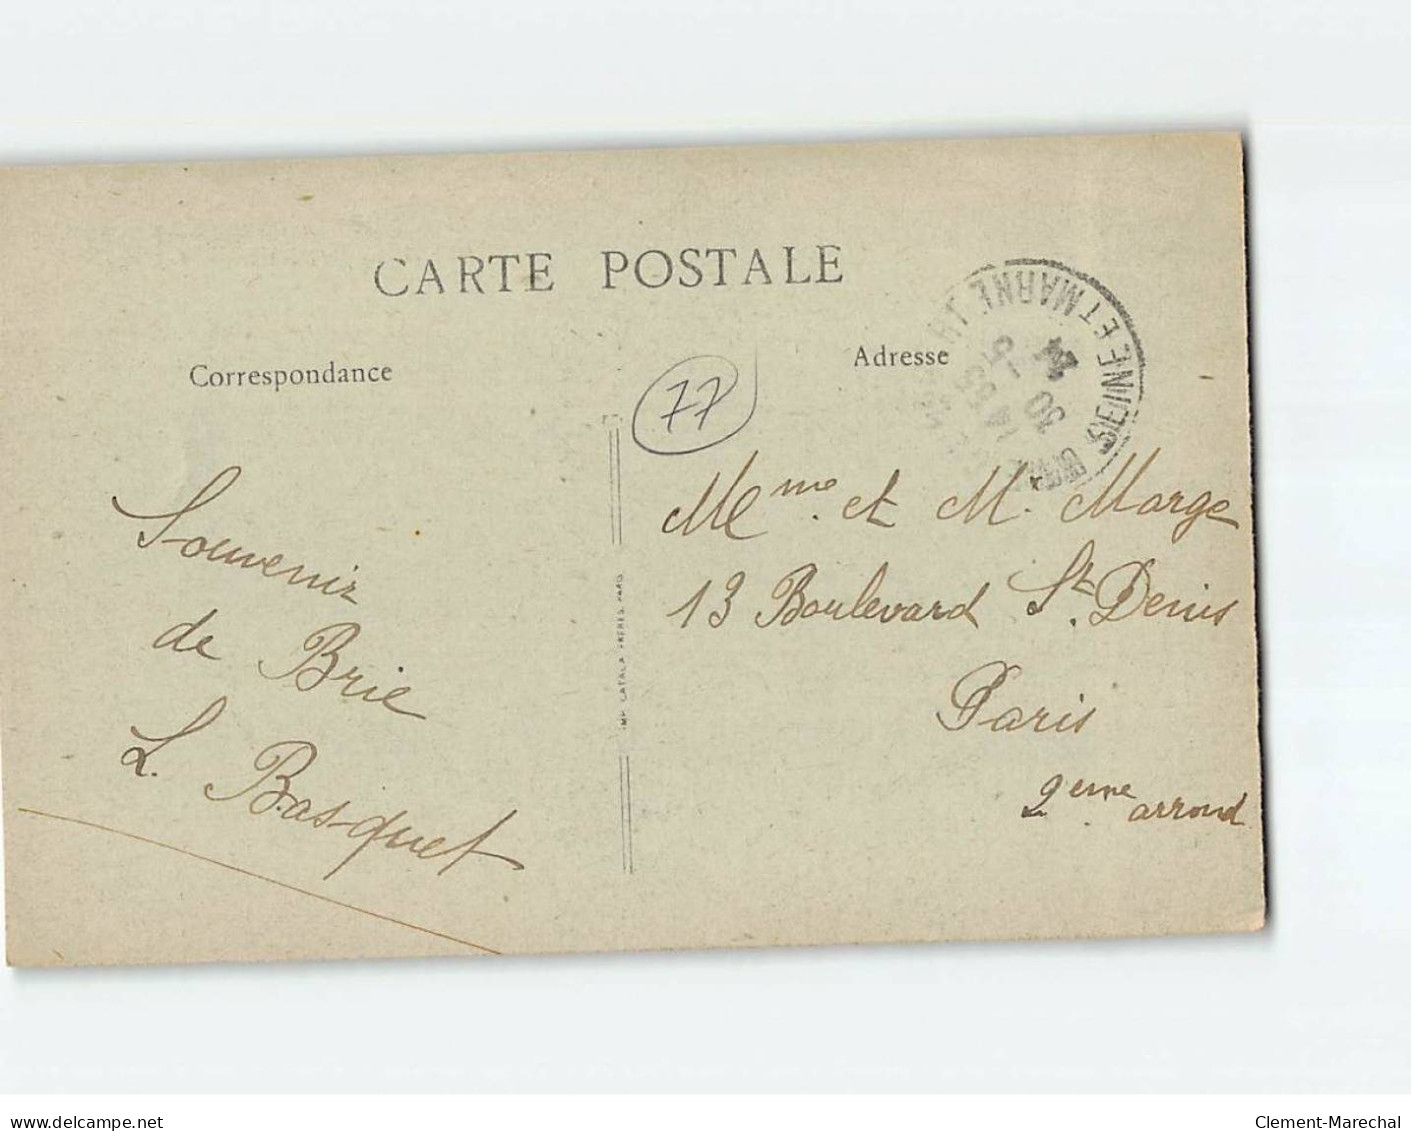 CARTE POSTALE
Correspondance
Adresse
77
SEINE ET MARNE
30
Souvenir
de Brie
L. Basquet
IMP. CATALA FRERES. PARIS
Mme. et M. Marge
13 Boulevard St. Denis
Paris
2eme arrond
www.delcampe.net
Clement-Marechal